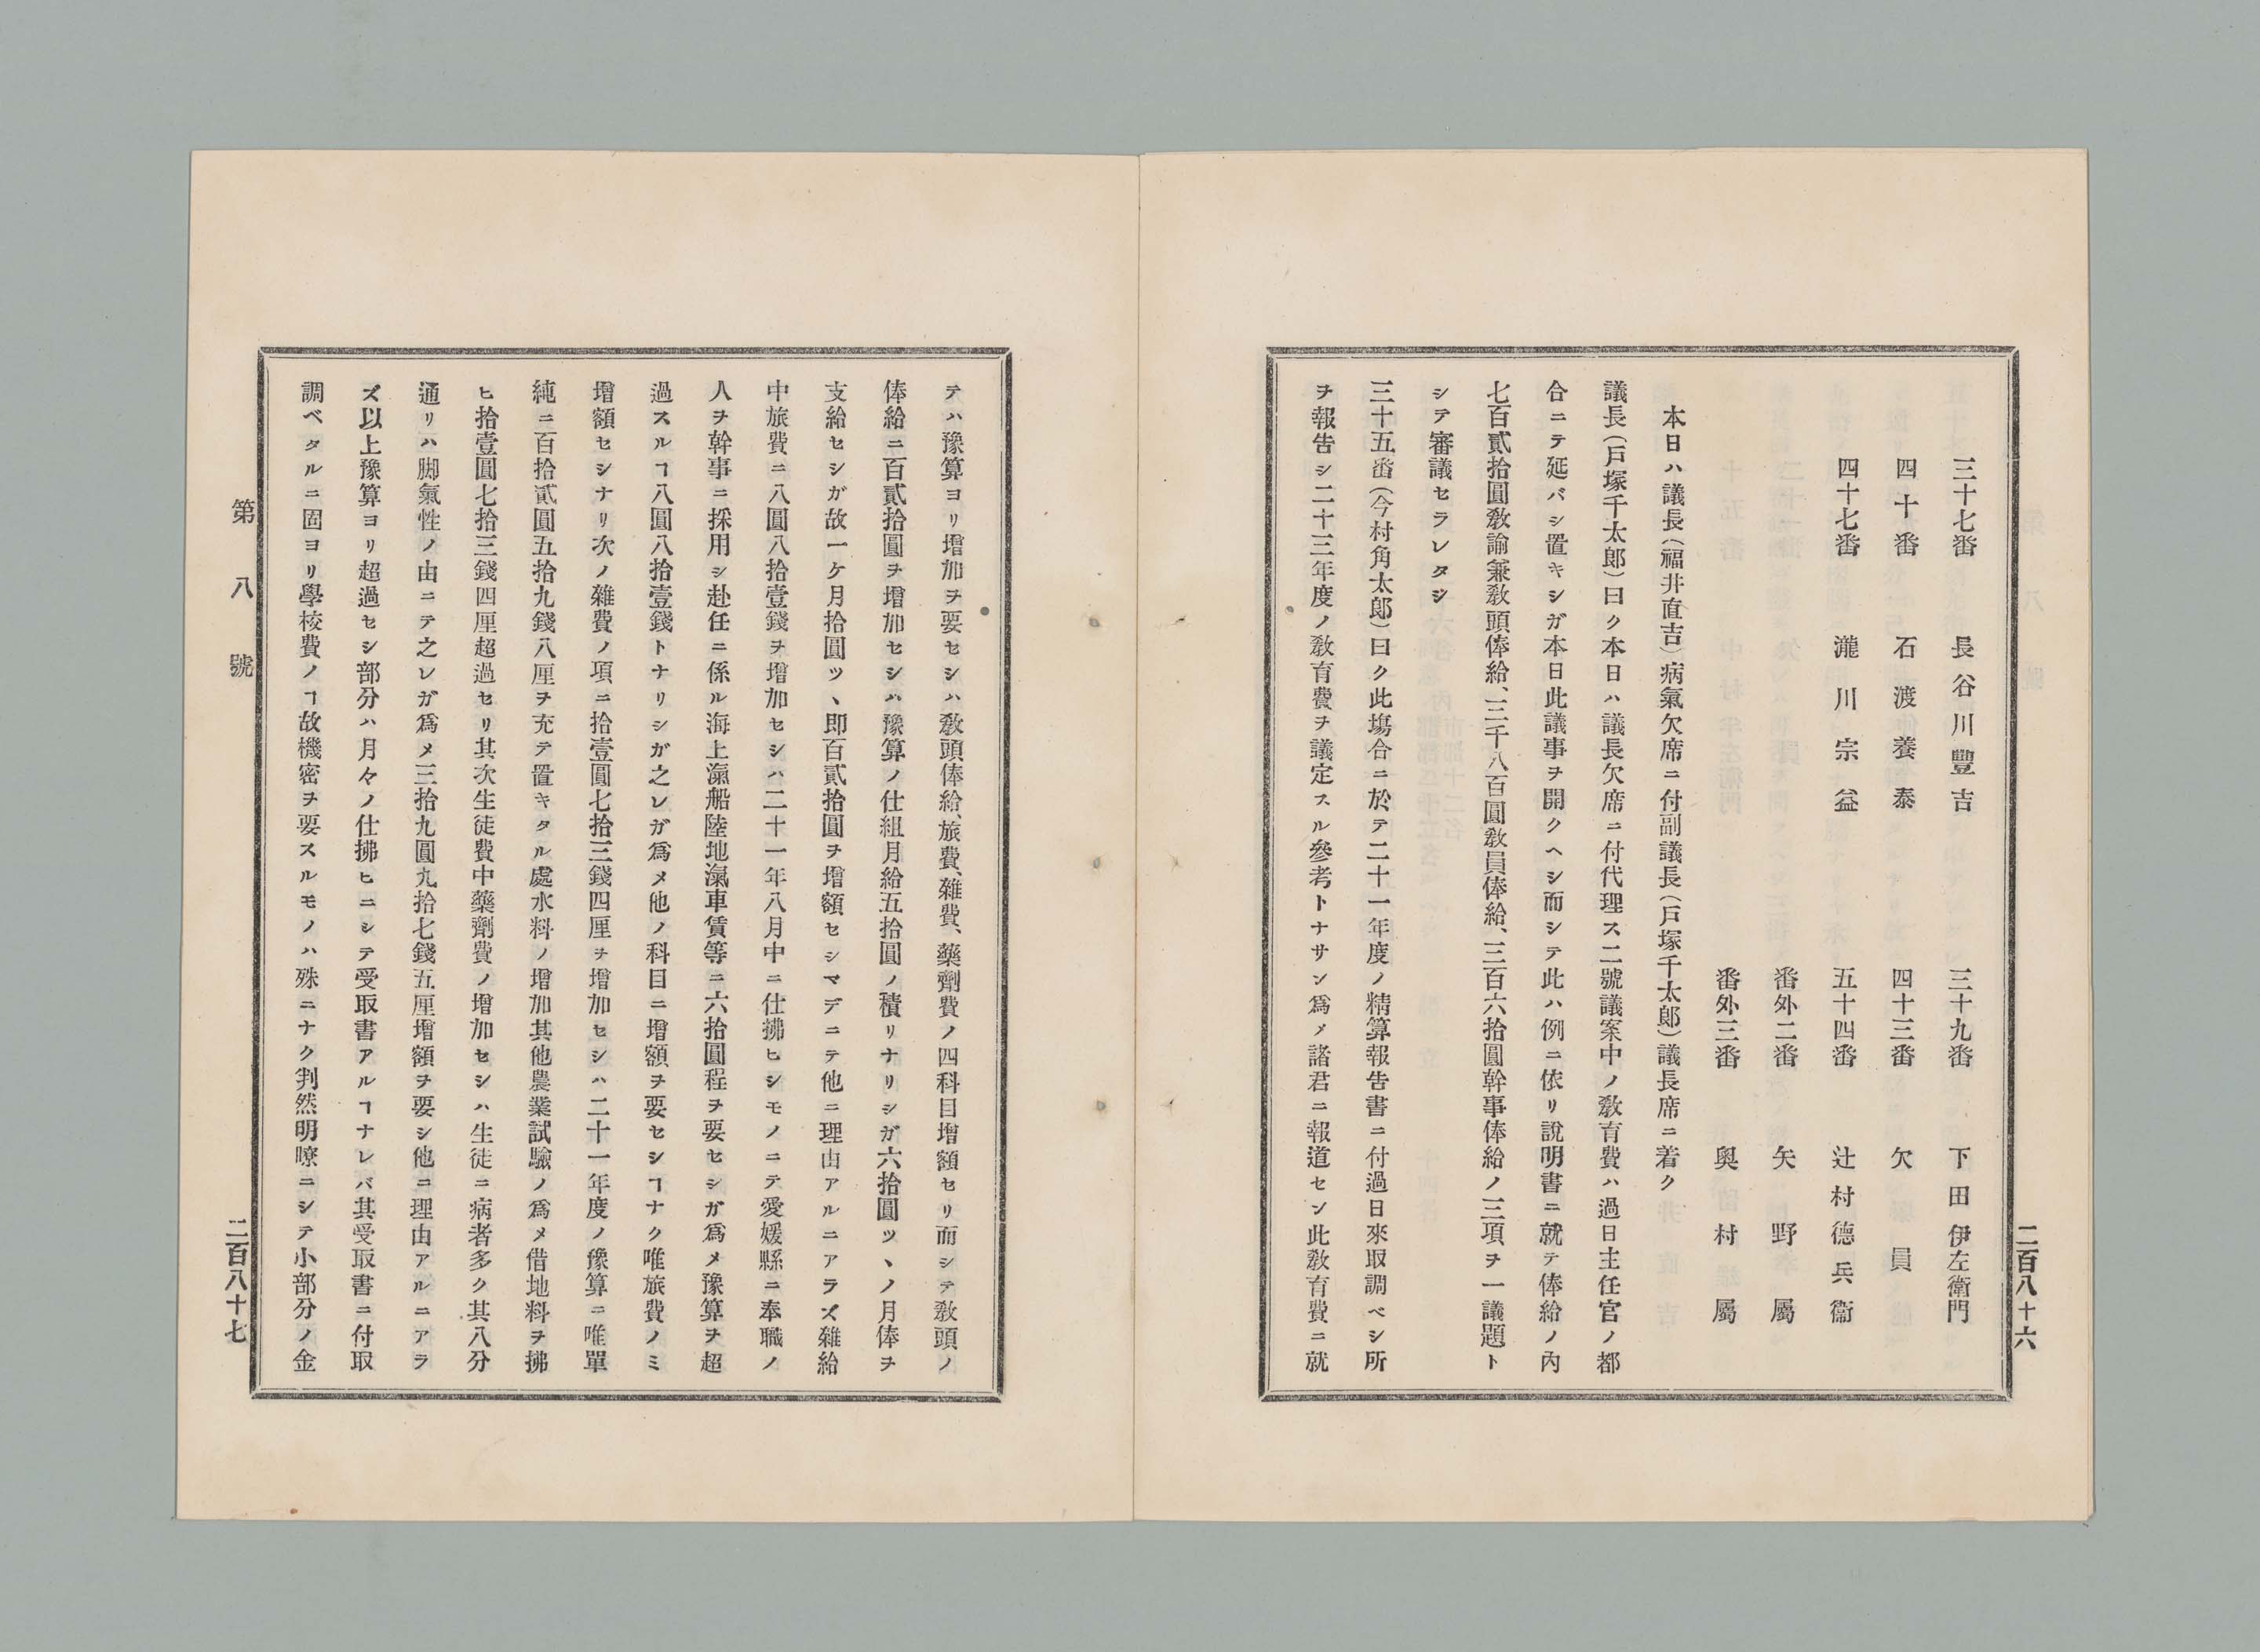 二百八十六
三十七番　長谷川豐吉　三十九番　下田伊左衞門
四十番　石渡養泰　四十三番　欠員
四十七番　瀧川宗益　五十四番　辻村德兵衞
番外二番　矢野屬
番外三番　奧村屬
本日ハ議長（福井直吉）病氣欠席ニ付副議長（戸塚千太郎）議長席ニ着ク
議長（戸塚千太郎）曰ク本日ハ議長欠席ニ付代理ス二號議案中ノ敎育費ハ過日主任官ノ都
合ニテ延バシ置キシガ本日此議事ヲ開クヘシ而シテ此ハ例ニ依リ說明書ニ就テ俸給ノ內
七百貳拾圓敎諭兼敎頭俸給、三千八百圓敎員俸給、三百六拾圓幹事俸給ノ三項ヲ一議題ト
シテ審議セラレタシ
三十五番（今村角太郎）曰ク此塲合ニ於テ二十一年度ノ精算報告書ニ付過日來取調ベシ所
ヲ報告シ二十三年度ノ敎育費ヲ議定スル參考トナサン爲メ諸君ニ報道セン此敎育費ニ就
テハ豫算ヨリ增加ヲ要セシハ敎頭俸給、旅費、雜費、藥劑費ノ四科目增額セリ而シテ敎頭ノ
俸給ニ百貳拾圓ヲ增加セシハ豫算ノ仕組月給五拾圓ノ積リナリシガ六拾圓ツヽノ月俸ヲ
支給セシガ故一ケ月拾圓ツヽ即百貳拾圓ヲ增額セシマデニテ他ニ理由アルニアラズ雜給
中旅費ニ八圓八拾壹錢ヲ增加セシハ二十一年八月中ニ仕拂ヒシモノニテ愛媛縣ニ奉職ノ
人ヲ幹事ニ採用シ赴任ニ係ル海上瀛船陸地瀛車賃等ニ六拾圓程ヲ要セシガ爲メ豫算ヲ超
過スルヿ八圓八拾壹錢トナリシガ之レガ爲メ他ノ科目ニ增額ヲ要セシヿナク唯旅費ノミ
增額セシナリ次ノ雜費ノ項ニ拾壹圓七拾三錢四厘ヲ增加セシハ二十一年度ノ豫算ニ唯單
純ニ百拾貳圓五拾九錢八厘ヲ充テ置キタル處水料ノ增加其他農業試驗ノ爲メ借地料ヲ拂
ヒ拾壹圓七拾三錢四厘超過セリ其次生徒費中藥劑費ノ增加セシハ生徒ニ病者多ク其八分
通リハ脚氣性ノ由ニテ之レガ爲メ三拾九圓九拾七錢五厘增額ヲ要シ他ニ理由アルニアラ
ズ以上豫算ヨリ超過セシ部分ハ月々ノ仕拂ヒニシテ受取書アルヿナレバ其受取書ニ付取
調ベタルニ固ヨリ學校費ノヿ故機密ヲ要スルモノハ殊ニナク判然明瞭ニシテ小部分ノ金
第八號
二百八十七